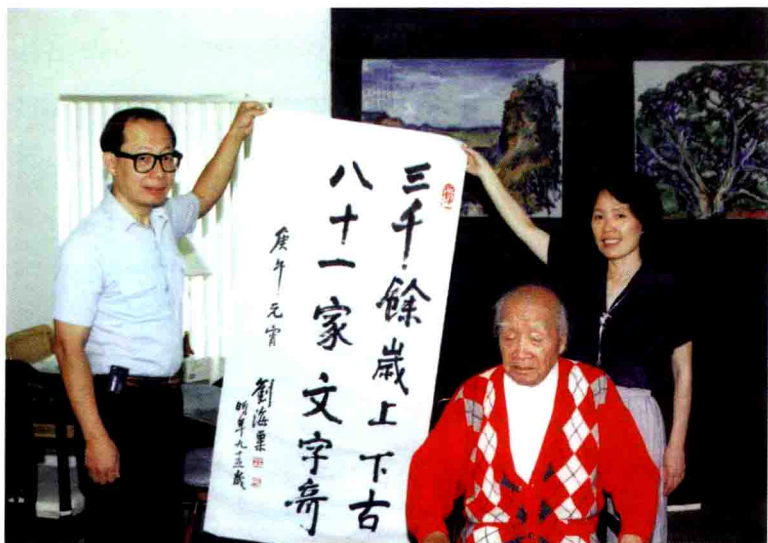 三千餘歲上下古
八十一家文字奇
庚午元宵
劉海粟
时年九十五歲